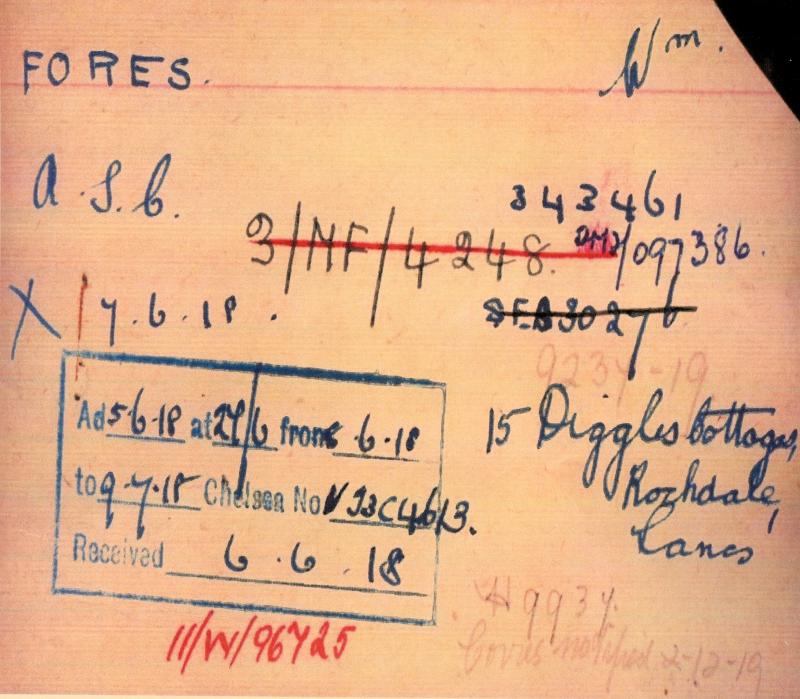 FORES. Wm.
A.S.C. 343461
3/MF/4248. DM2/097386.
X 7.6.18. 30276
9237-19
Ad 5.6.18 at 27/6 from 5.6.18
to 9.7.18 Chelsea No
Received 6.6.18
15 Diggles Cottages,
Rochdale,
Lancs
11/W/96725
H 9937.
notified 2-12-19